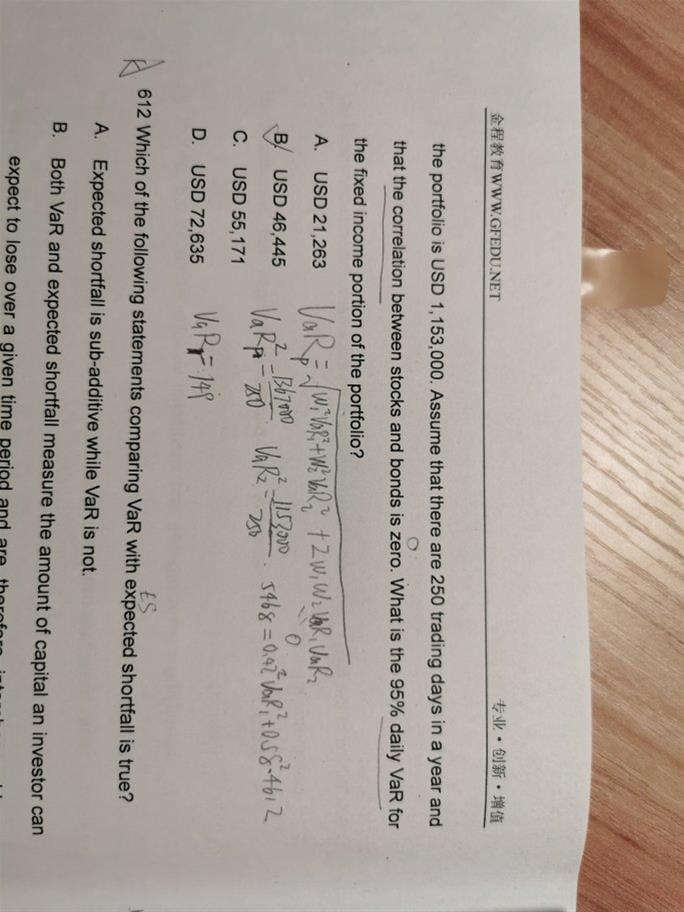 金程教育WWW.GFEDU.NET 专业·创新·增值
the portfolio is USD 1,153,000. Assume that there are 250 trading days in a year and
that the correlation between stocks and bonds is zero. What is the 95% daily VaR for
0
the fixed income portion of the portfolio?
A. USD 21,263
B. USD 46,445
C. USD 55,171
D. USD 72,635
VaRp = √W₁²VaR₁²+W₂²VaR₂² + 2W₁W₂VaR₁VaR₂
0
VaRp² = 1367000/250 VaR₂² = 1153000/250 . 5468 = 0.42²VaR₁²+0.58²·4612
= 149
612 Which of the following statements comparing VaR with expected shortfall is true?
ES
A. Expected shortfall is sub-additive while VaR is not.
B. Both VaR and expected shortfall measure the amount of capital an investor can
expect to lose over a given time period and are therefore